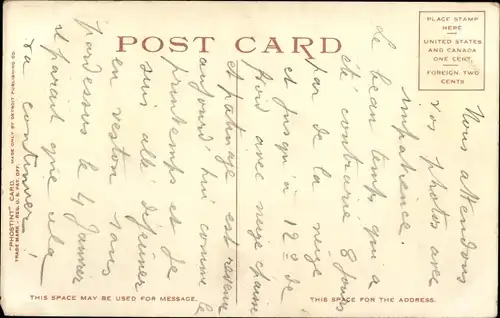 POST CARD
PLACE STAMP
HERE
UNITED STATES
AND CANADA
ONE CENT
FOREIGN, TWO
CENTS
"PHOSTINT" CARD. MADE ONLY BY DETROIT PUBLISHING CO.
TRADE MARK - REG. U.S. PAT. OFF.
THIS SPACE MAY BE USED FOR MESSAGE.
THIS SPACE FOR THE ADDRESS.
Nous attendons
vos photos avec
impatience.
Le beau temps qui a
été contrarié 8 jours
par de la neige
et jusqu'à 12° de
froid avec neige
et patinage est revenu
aujourd'hui comme le
printemps et je
suis allé déjeuner
en veston sans
pardessus le 4 Janvier
il paraît que cela
va continuer!